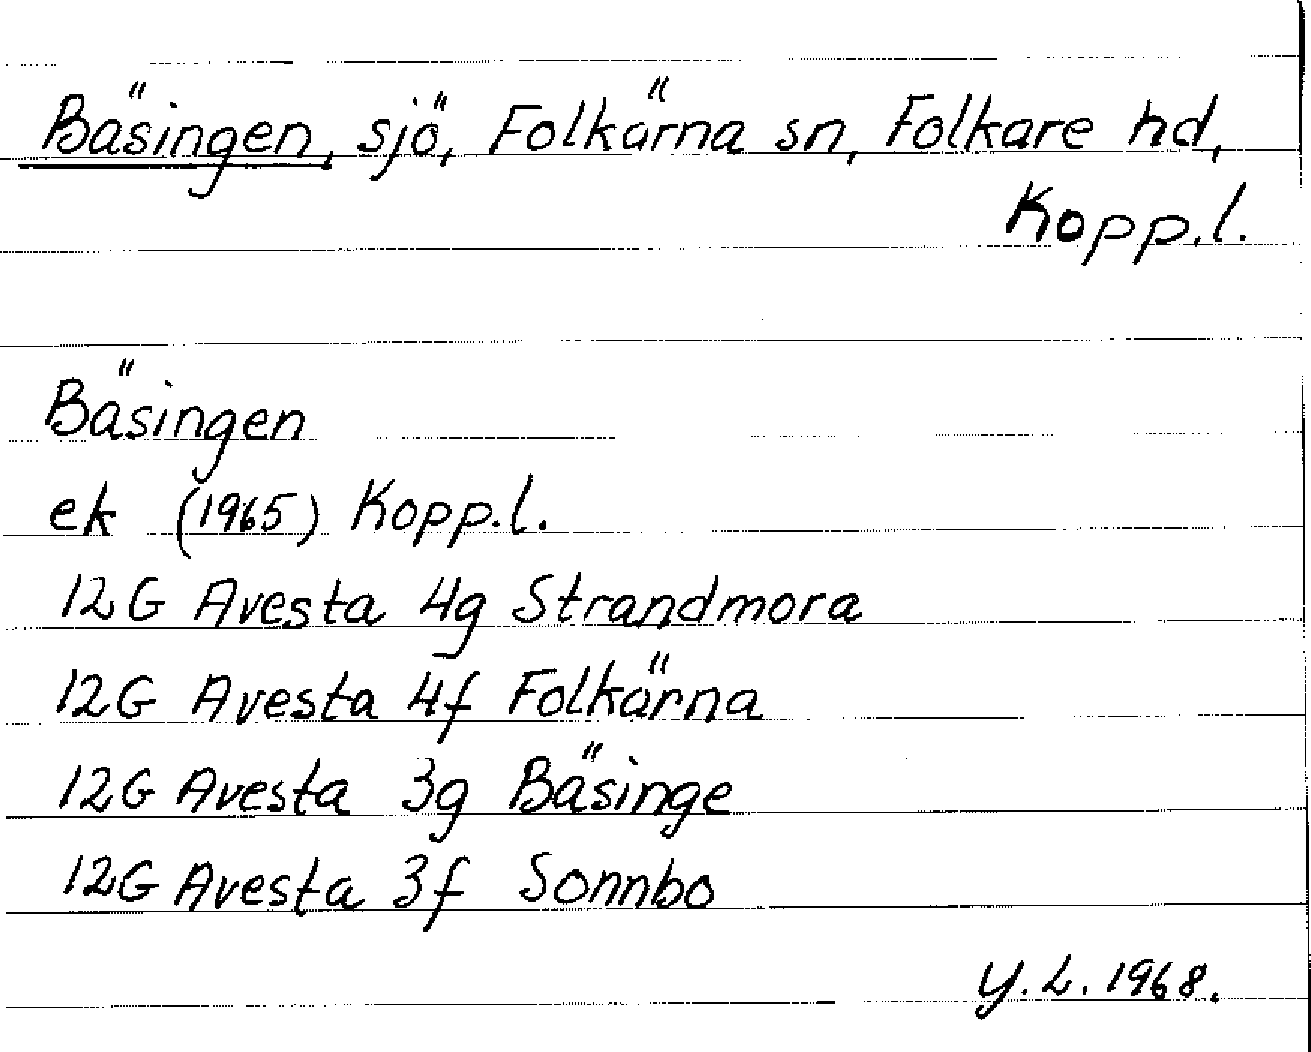 Bäsingen, sjö, Folkärna sn, Folkare hd,
Kopp.l.
Bäsingen
ek (1965) Kopp.l.
12G Avesta 4g Strandmora
12G Avesta 4f Folkärna
12G Avesta 3g Bäsinge
12G Avesta 3f Sonnbo
Y.L. 1968.